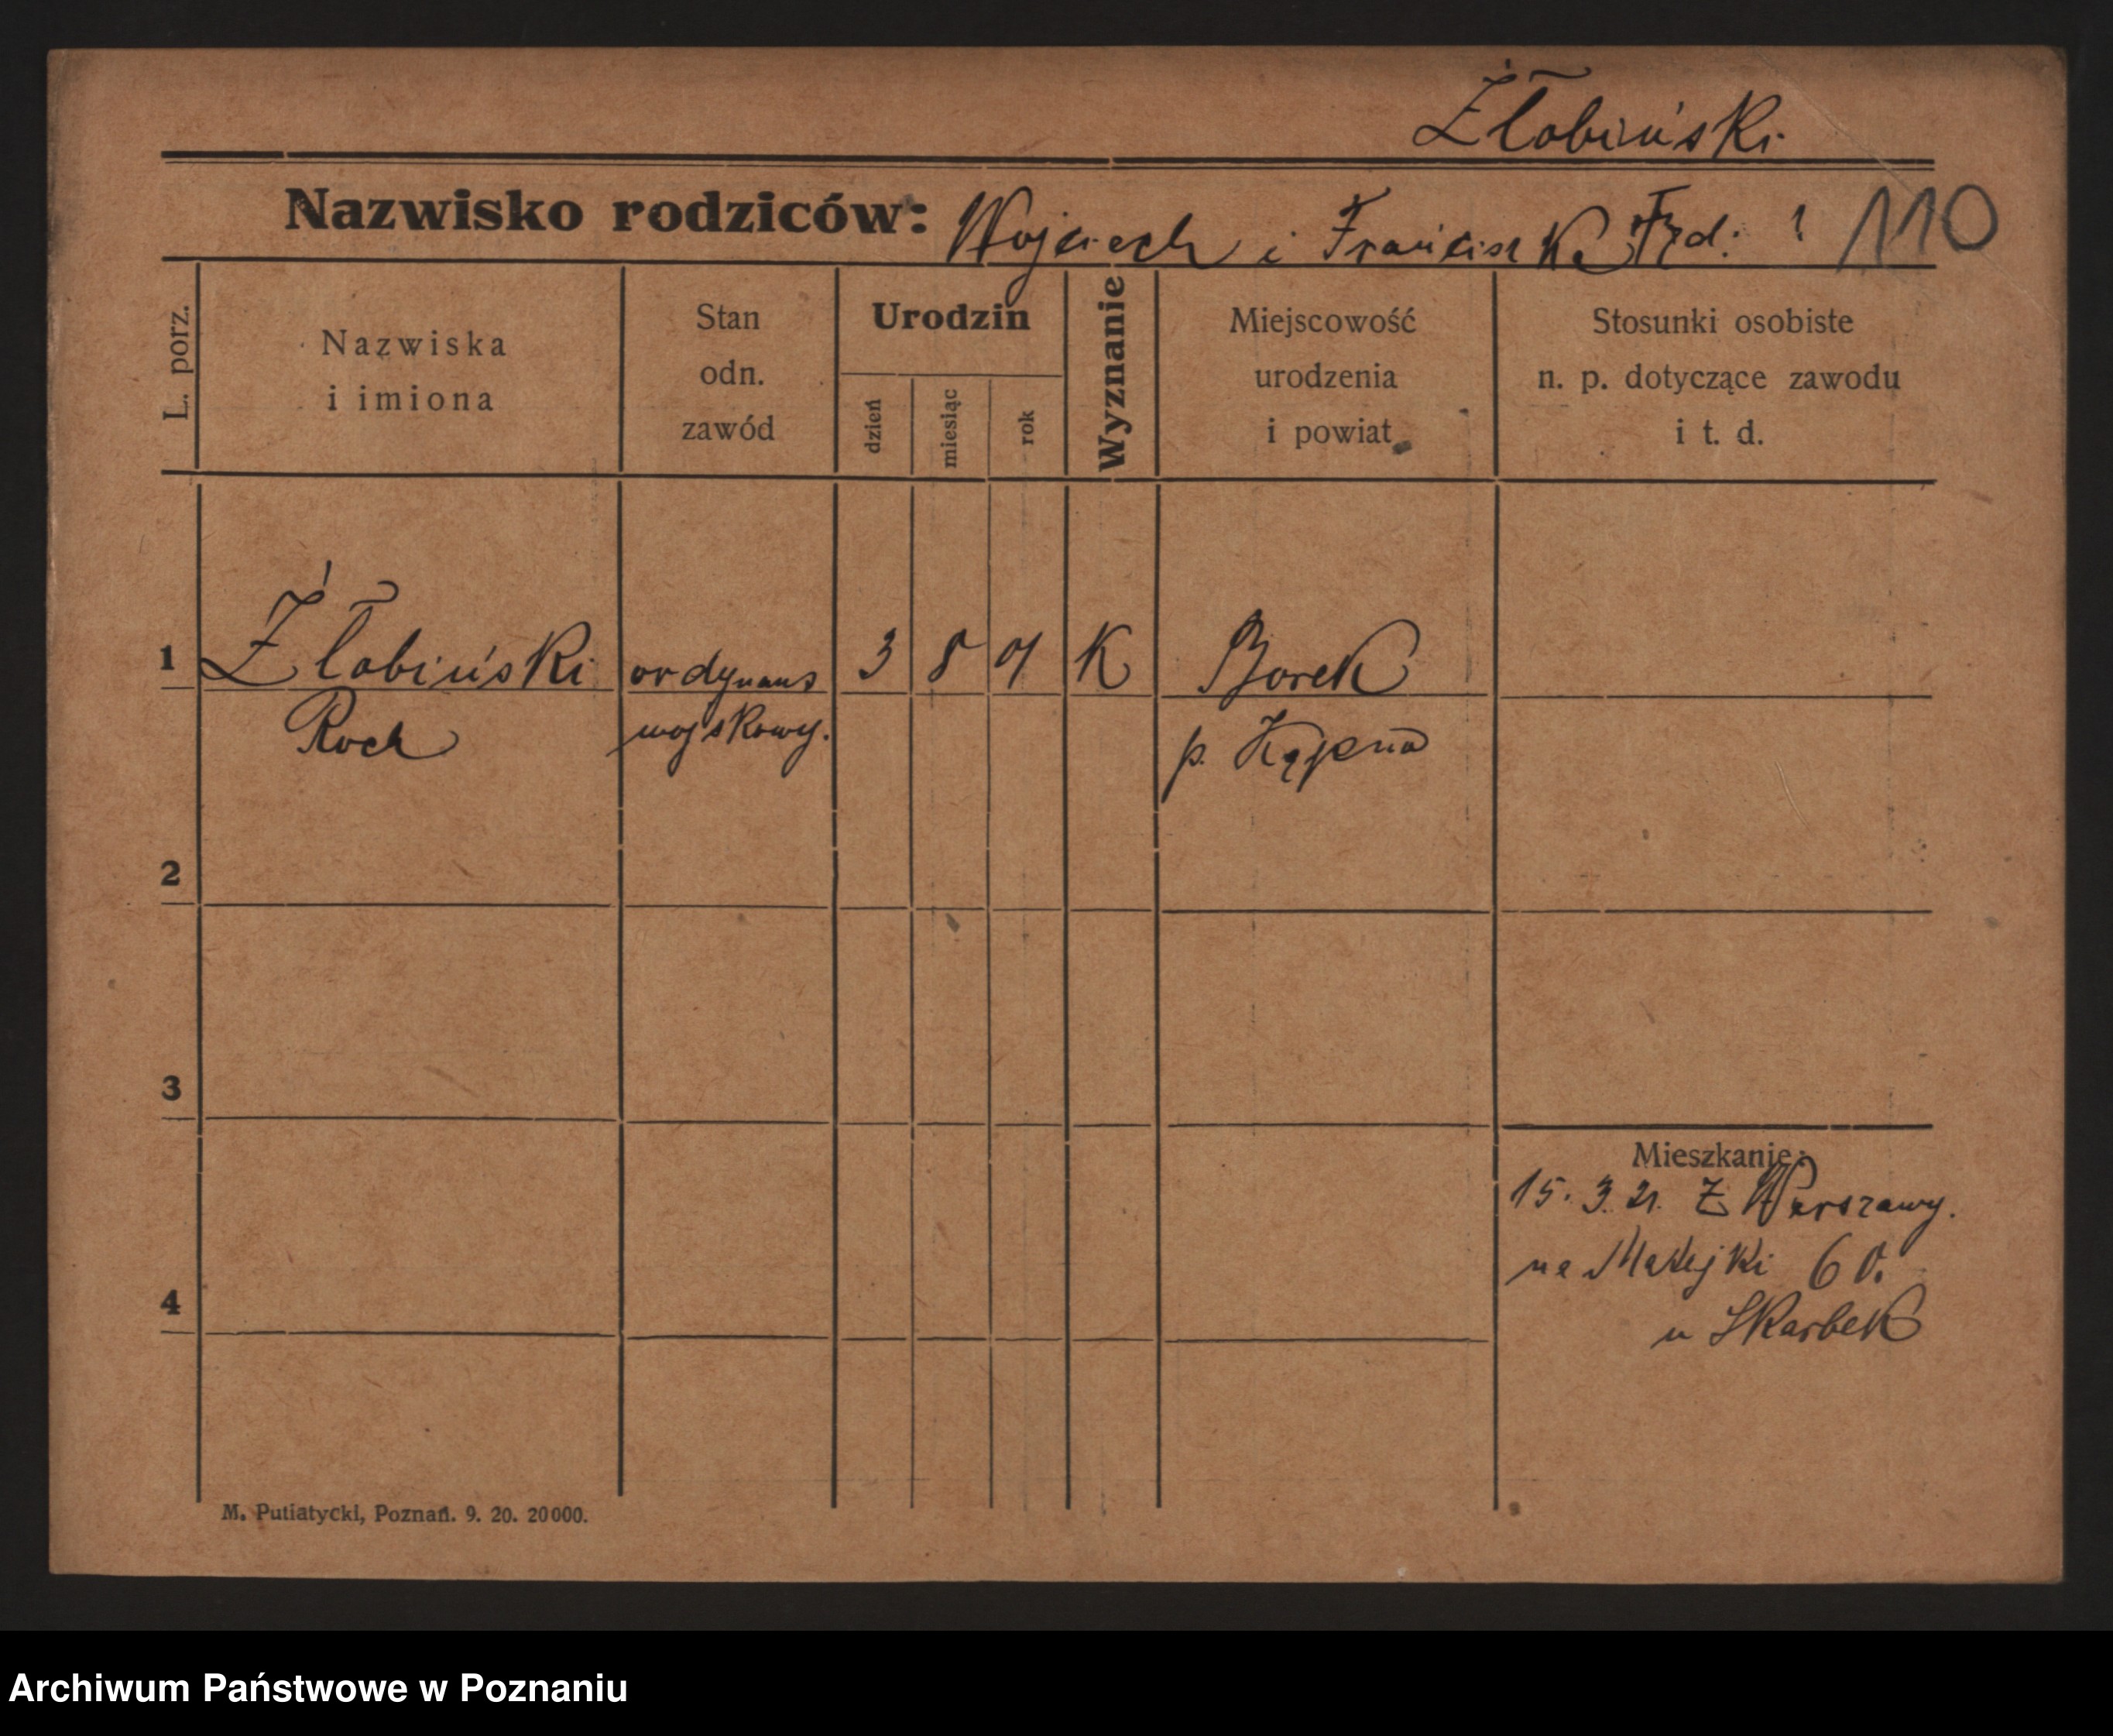 Żłobiński
Nazwisko rodziców: Wojciech i Franciszka 110
L. porz.
Nazwiska
i imiona
Stan
odn.
zawód
Urodzin
dzień
miesiąc
rok
Wyznanie
Miejscowość
urodzenia
i powiat
Stosunki osobiste
n. p. dotyczące zawodu
i t. d.
1 Żłobiński ordynans 3 8 K Borek
Roch wojskowy. p.
2
3
4
Mieszkanie:
15. 3. 21. Z Warszawy.
na Matejki 60.
u Skarbek
M. Putiatycki, Poznań. 9. 20. 20000.
Archiwum Państwowe w Poznaniu